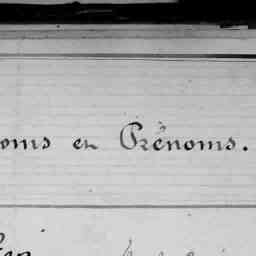 oms et Prénoms.